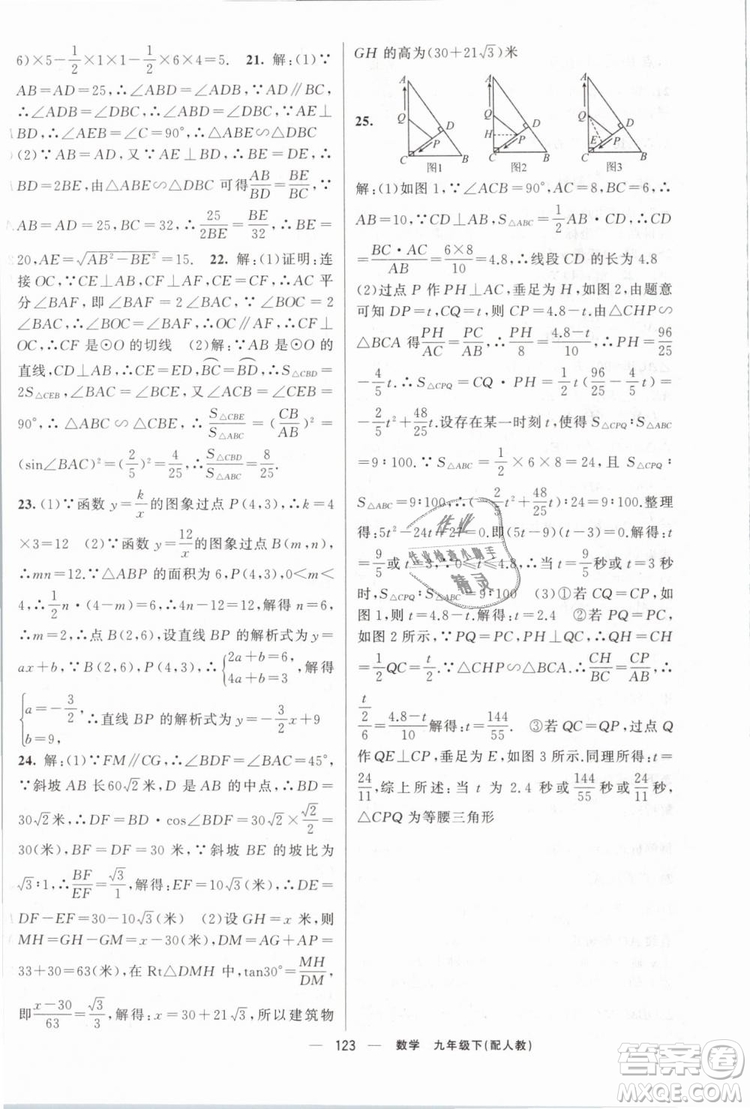 6)×5−1/2×1×1−1/2×5×5=25. 21. 解：(1)∵
AB=AD=25，∴∠ABD=∠ADB，∵AD∥BC，
∴∠ADB=∠DBC，∴∠ABD=∠DBC，∵AE⊥
BD，∴∠AEB=∠C=90°，∴△ABE∽△DBC
(2)∵AB=AD，又∵AE⊥BD，∴BE=DE，∴
BD=2BE，由△ABE∽△DBC可得AB/BD=BE/BC，
∵AB=AD=25，BC=32，∴25/2BE=BE/32，∴BE=
20，AE=√(AB²−BE²)=15. 22. 解：(1)证明：连
接OC，∵CE⊥AB，CF⊥AF，CE=CF，∴AC平
分∠BAF，即∠BAF=2∠BAC，∵∠BOC=2
∠BAC，∴∠BOC=∠BAF，∴OC∥AF，∴CF⊥
OC，∴CF是⊙O的切线 (2)解：∵AB是⊙O的
直线，CD⊥AB，∴CE=ED，BC=BD，∴S△CBD=
2S△CEB，∠BAC=∠BCE，∵∠ACB=∠CEB=
90°，∴△ABC∽△CBE，∴S△CBE/S△ABC=(CB/AB)²=
(sin∠BAC)²=(2/5)²=4/25，∴S△CBD/S△ABC=8/25.
23. (1)∵函数y=k/x的图象过点P(4,3)，∴k=4
×3=12 (2)∵函数y=12/x的图象过点B(m,n)，
∴mn=12，∵△ABP的面积为6，P(4,3)，0<m<
4，∴1/2n·(4−m)=6，∴4n−12=12，解得n=6，
∴m=2，∴点B(2,6)，设直线BP的解析式为y=
ax+b，∵B(2,6)，P(4,3)，∴{2a+b=6, 4a+b=3，解得
{a=−3/2, b=9，∴直线BP的解析式为y=−3/2x+9
24. 解：(1)∵FM∥CG，∴∠BDF=∠BAC=45°，
∵斜坡AB长60√2米，D是AB的中点，∴BD=
30√2米，∴DF=BD·cos∠BDF=30√2×√2/2=
30(米)，BF=DF=30米，∵斜坡BE的坡比为
√3∶1，∴BF/EF=√3/1，解得：EF=10√3(米)，∴DE=
DF−EF=30−10√3(米) (2)设GH=x米，则
MH=GH−GM=x−30(米)，DM=AG+AP=
33+30=63(米)，在Rt△DMH中，tan30°=MH/DM，
即(x−30)/63=√3/3，解得：x=30+21√3，所以建筑物
GH的高为(30+21√3)米
25.
A Q D P C B 图1
A Q D H P C B 图2
A Q D E P C B 图3
解：(1)如图1，∵∠ACB=90°，AC=8，BC=6，∴
AB=10，∵CD⊥AB，∴S△ABC=1/2AB·CD，∴CD
=BC·AC/AB=6×8/10=4.8，∴线段CD的长为4.8
(2)过点P作PH⊥AC，垂足为H，如图2，由题意
可知DP=t，CQ=t，则CP=4.8−t，由△CHP∽
△BCA得PH/AC=PC/AB，∴PH/8=(4.8−t)/10，∴PH=96/25
−4/5t，∴S△CPQ=CQ·PH=1/2t(96/25−4/5t)=
−2/5t²+48/25t，设存在某一时刻t，使得S△CPQ∶S△ABC
=9∶100，∵S△ABC=1/2×6×8=24，且S△CPQ∶
S△ABC=9∶100，∴(−2/5t²+48/25t)∶24=9∶100，整理
得：5t²−24t+27=0，即(5t−9)(t−3)=0，解得：t=
9/5或t=3，∵0≤t≤4.8，∴当t=9/5秒或t=3秒
时，S△CPQ∶S△ABC=9∶100 (3)①若CQ=CP，如
图1，则t=4.8−t，解得：t=2.4 ②若PQ=PC，如
图2所示，∵PQ=PC，PH⊥QC，∴QH=CH
=1/2QC=t/2，∵△CHP∽△BCA，∴CH/BC=CP/AB，∴
t/2/6=(4.8−t)/10 解得：t=144/55. ③若QC=QP，过点Q
作QE⊥CP，垂足为E，如图3所示，同理所得：t=
24/11，综上所述：当t为2.4秒或144/55秒或24/11秒时，
△CPQ为等腰三角形
作业
作业检查小助手
精灵
123 数学 九年级下(配人教)
答案圈
MXQE.COM